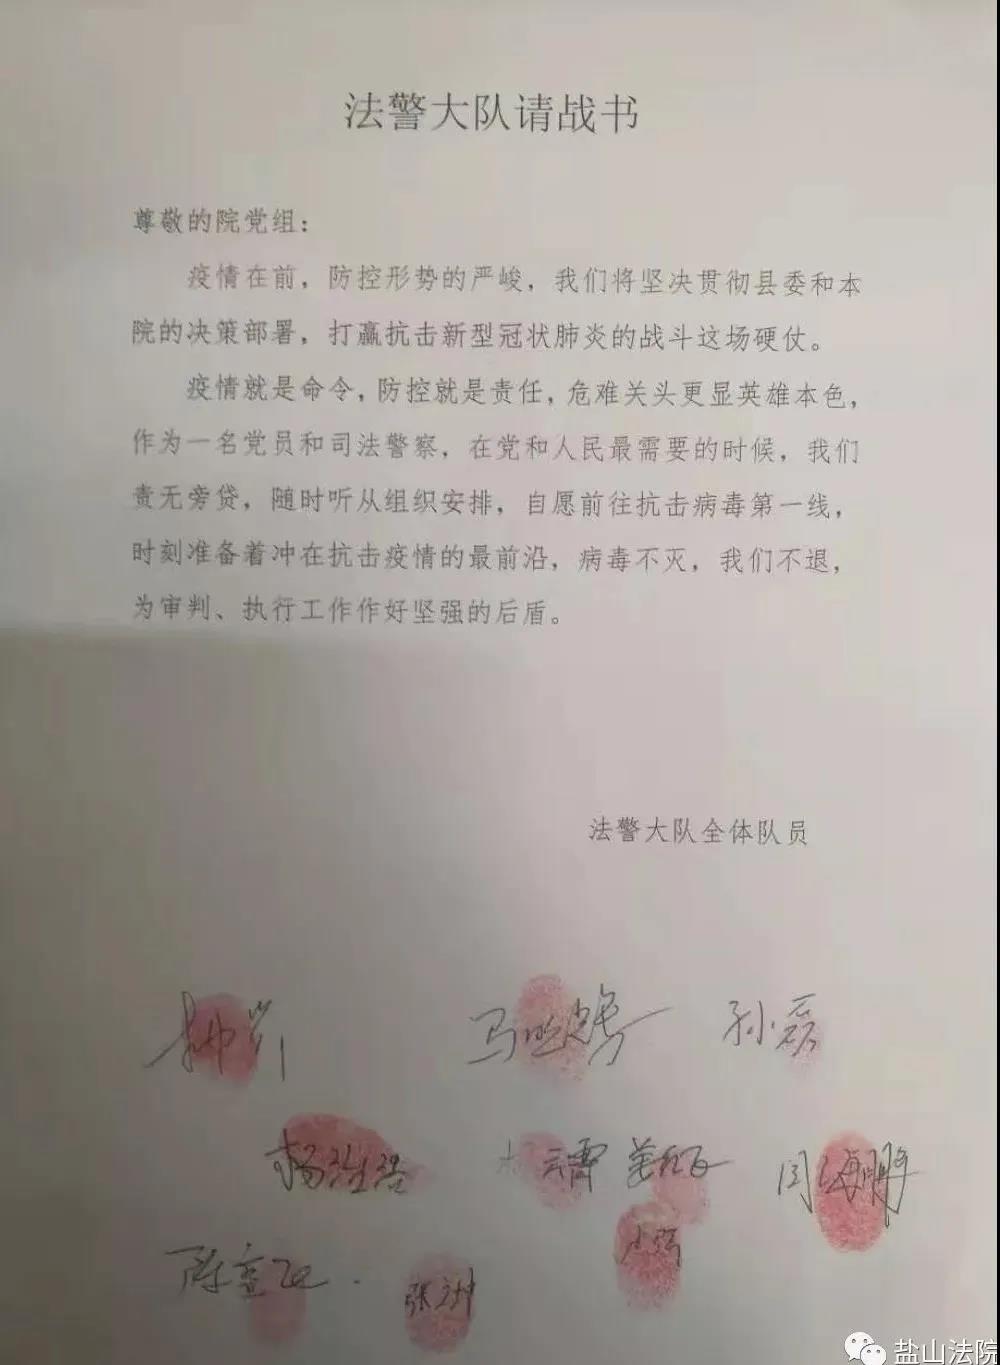 法警大队请战书
尊敬的院党组：
疫情在前，防控形势的严峻，我们将坚决贯彻县委和本
院的决策部署，打赢抗击新型冠状肺炎的战斗这场硬仗。
疫情就是命令，防控就是责任，危难关头更显英雄本色，
作为一名党员和司法警察，在党和人民最需要的时候，我们
责无旁贷，随时听从组织安排，自愿前往抗击病毒第一线，
时刻准备着冲在抗击疫情的最前沿，病毒不灭，我们不退，
为审判、执行工作作好坚强的后盾。
法警大队全体队员
孙磊
闫海鹏
张洲
盐山法院